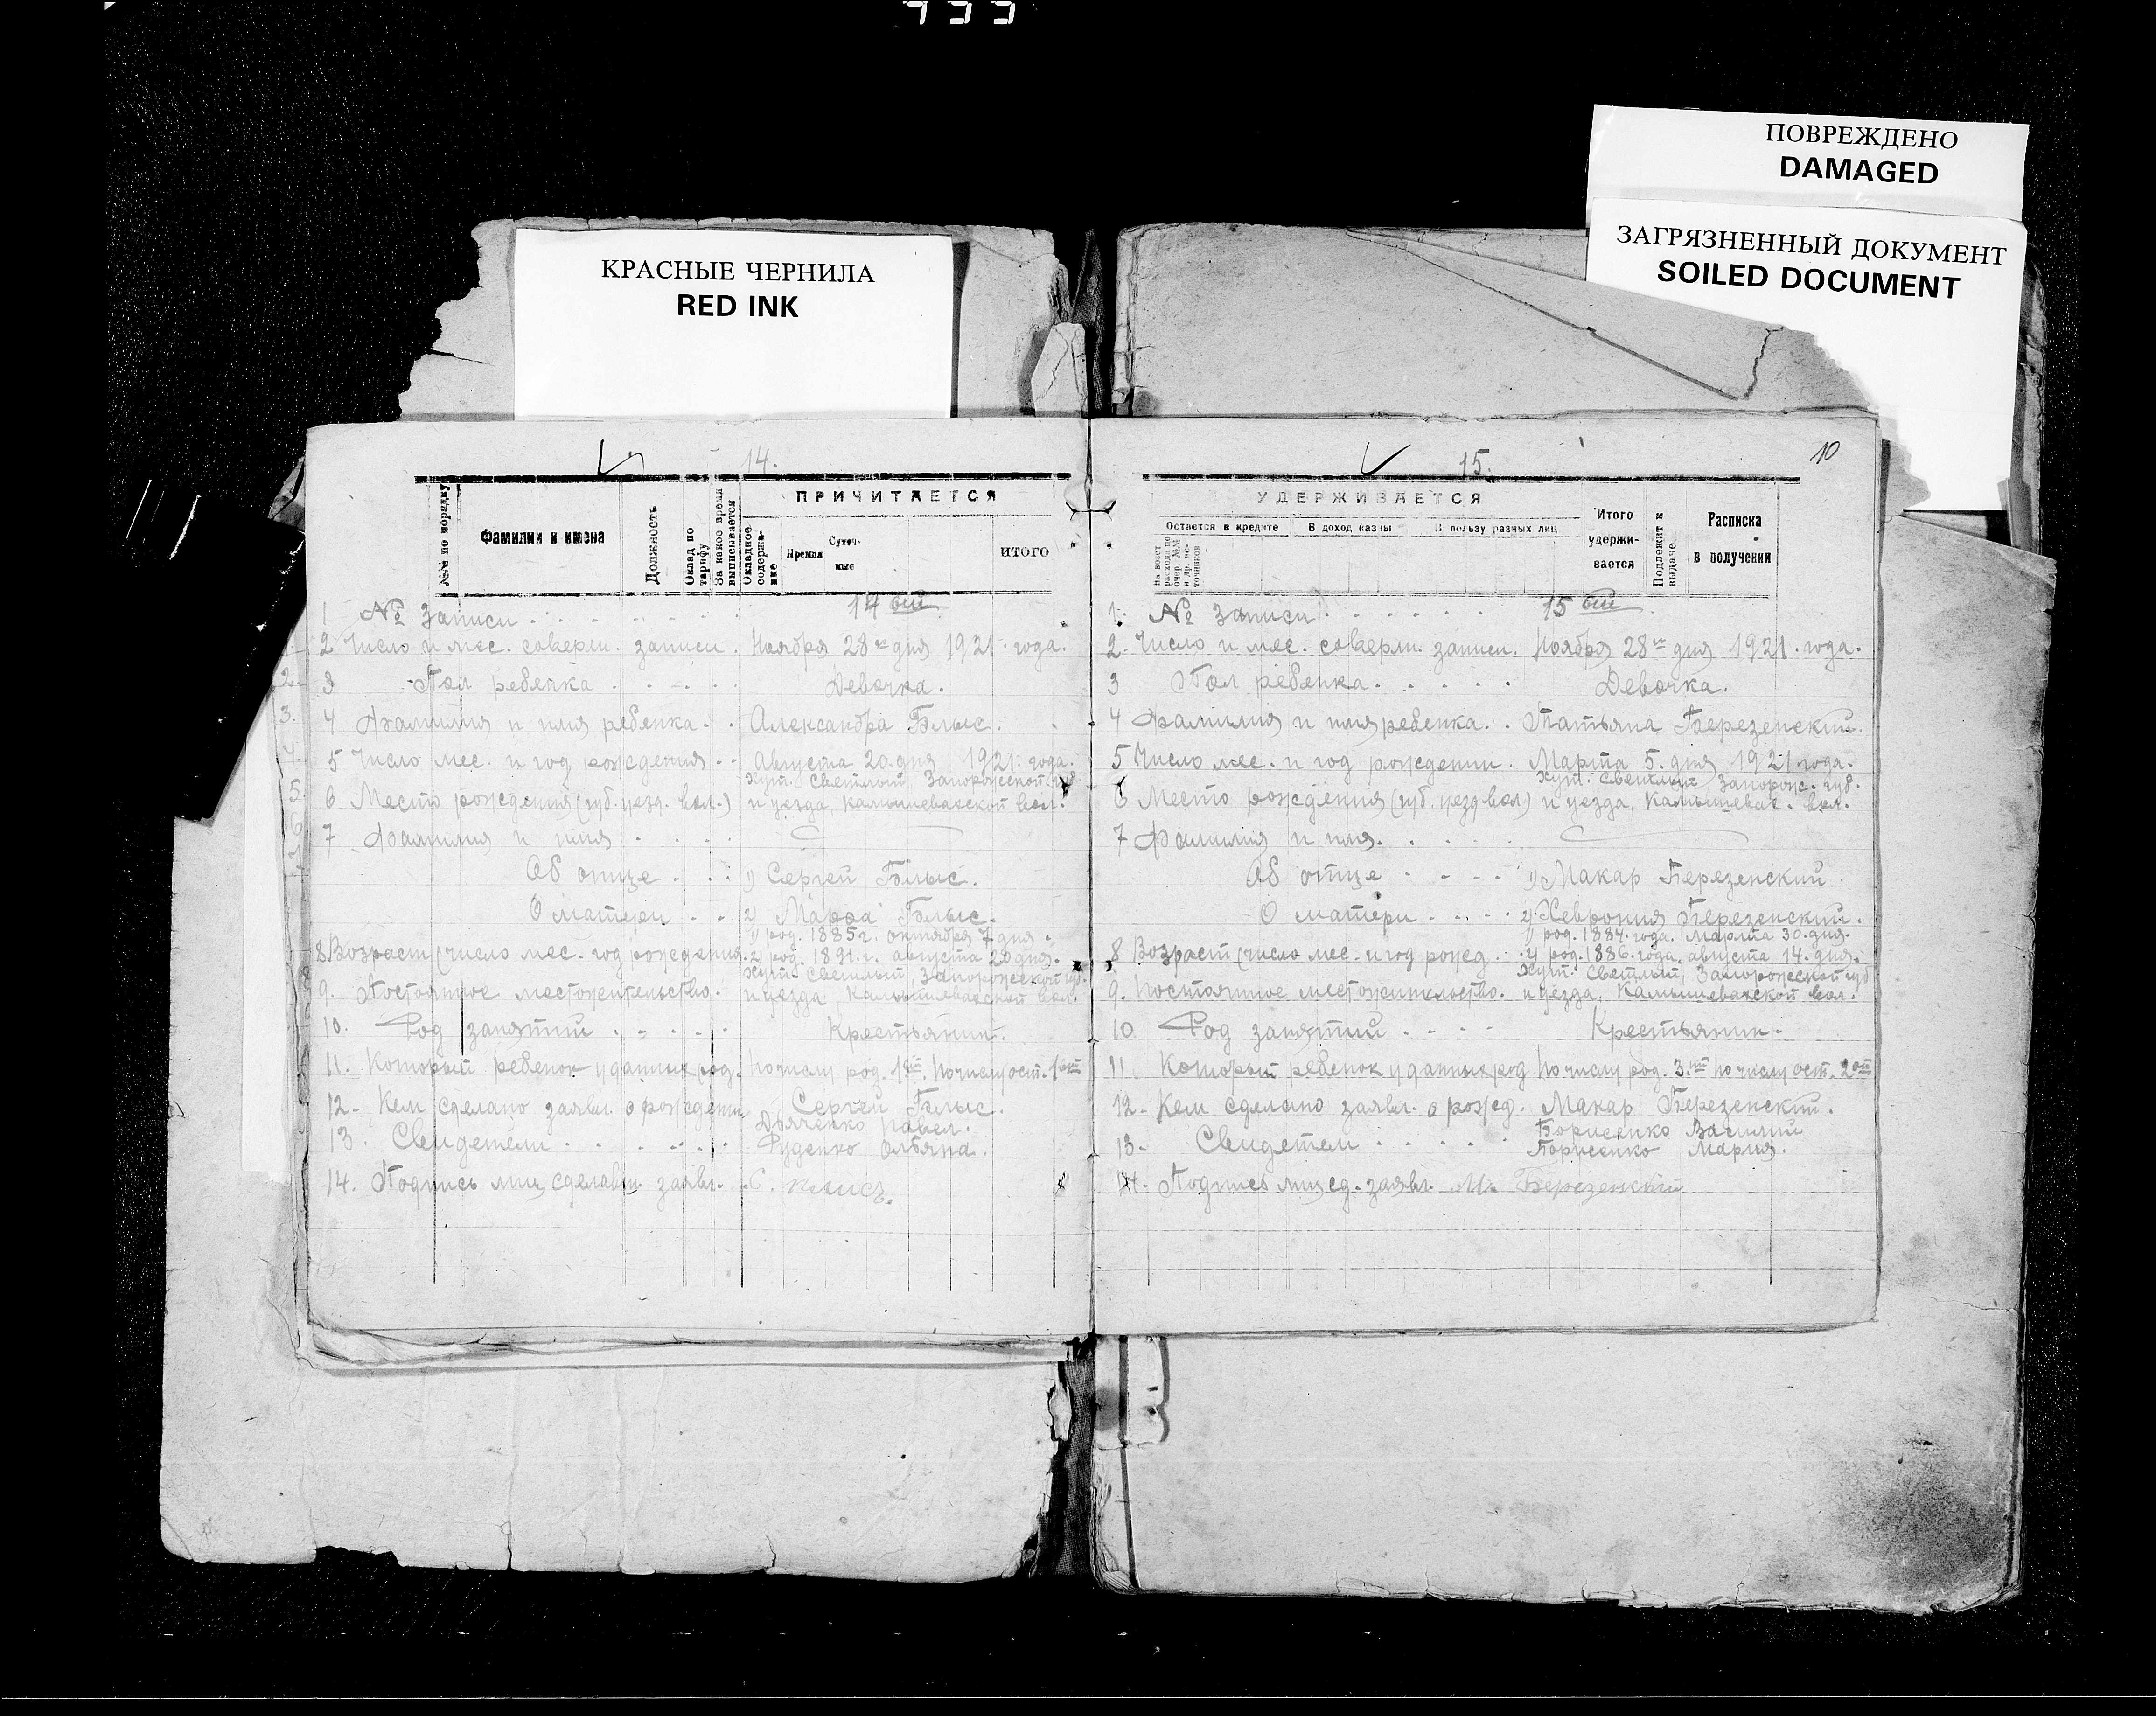 933
ПОВРЕЖДЕНО
DAMAGED
ЗАГРЯЗНЕННЫЙ ДОКУМЕНТ
SOILED DOCUMENT
КРАСНЫЕ ЧЕРНИЛА
RED INK
14.
ПРИЧИТАЕТСЯ
№№ по порядку
Фамилии и имена
Должность
Оклад по тарифу
За какое время выписывается
Окладное содержание
Суточные
ИТОГО
1 № Записи 14 ый
2 Число и мес. соверш. записи. Ноября 28 го дня 1921. года.
3 Пол ребенка Девочка.
4 Фамилия и имя ребенка. Александра Блыс.
5 Число мес. и год рождения Августа 20. дня 1921. года.
хут. Светлый, Запорожской губ.
6 Место рождения (губ. уезд. вол.) и уезда, Камышевахской вол.
7 Фамилия и имя
Об отце 1) Сергей Блыс.
О матери 2) Марфа Блыс.
1) род. 1885 г. октября 7 дня.
8 Возраст (число мес. год рождения. 2) род. 1891. г. августа 20 дня.
хут. Светлый, Запорожской губ.
9. Постоянное местожительство. и уезда, Камышевахской вол.
10. Род занятий Крестьянин.
11. Который ребенок у данных род. по числу род. 1ый. по числу ост. 1ый
12. Кем сделано заявл. о рождении Сергей Блыс.
Дьяченко Павел.
13. Свидетели Руденко Ольяна.
14. Подпись лиц сделавш. заявл. С.
15.
10
УДЕРЖИВАЕТСЯ
Остается в кредите
В доход казны
В пользу разных лиц
Итого удерживается
Подлежит к выдаче
Расписка в получении
1. № Записи 15 ый
2. Число и мес. соверш. записи. Ноября 28 го дня 1921. года.
3 Пол ребенка. Девочка.
4 Фамилия и имя ребенка. Татьяна Березенский.
5 Число мес. и год рождении. Марта 5. дня 1921 года.
хут. Светлый Запорож. губ.
6 Место рождения (губ. уезд вол) и уезда, Камышевах. вол.
7 Фамилия и имя.
Об отце 1) Макар Березенский.
О матери 2) Хеврония Березенский.
1) род. 1884. года. Марта 30. дня.
8 Возраст (число мес. и год рожд. 2) род. 1886. года, августа 14. дня.
хут. Светлый, Запорожской губ
9. Постоянное местожительство. и уезда, Камышевахской вол.
10 Род занятий Крестьянин.
11 Который ребенок у данных род по числу род. 3. ий по числу ост. 2 ой
12. Кем сделано заявл. о рожд. Макар Березенский.
Борисенко Василий
13. Свидетели Борисенко Мария.
14. Подпись лиц сд. заявл. М. Березенский